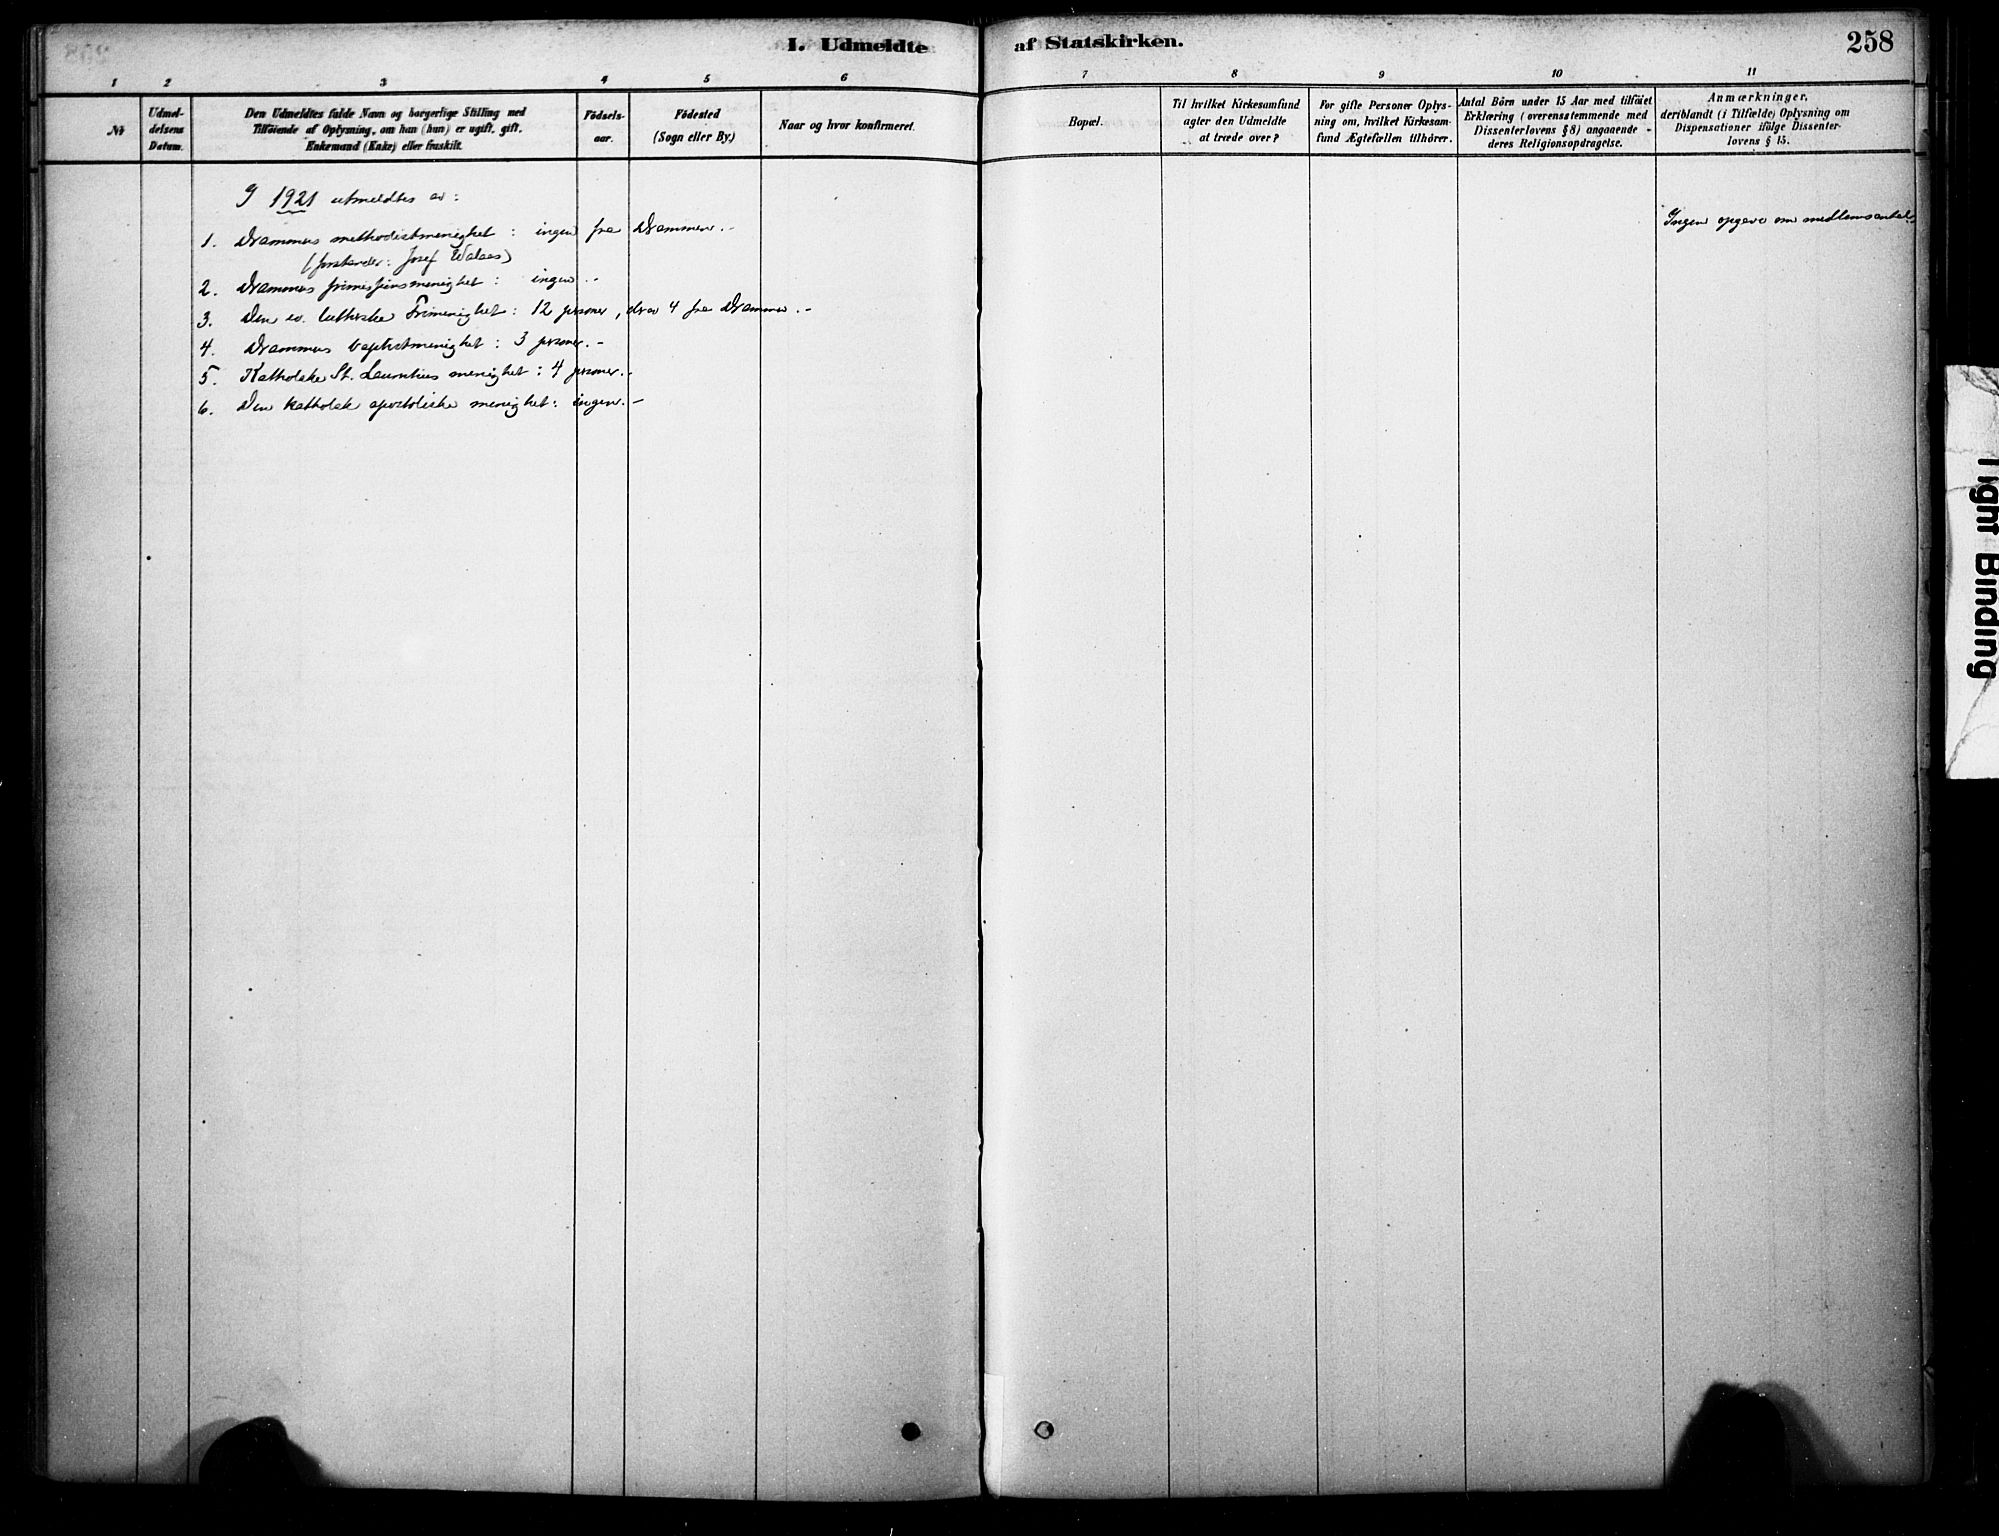 I. Udmeldte af Statskirken.
258
1 2 3 4 5 6 7 8 9 10 11
№
Udmel-
delsens
Datum.
Den Udmeldtes fulde Navn og borgerlige Stilling med
Tilföiende af Oplysning, om han (hun) er ugift, gift,
Enkemand (Enke) eller fraskilt.
Födsels-
aar.
Födested
(Sogn eller By.)
Naar og hvor konfirmeret.
Bopæl.
Til hvilket Kirkesamfund
agter den Udmeldte
at træde over?
For gifte Personer Oplys-
ning om, hvilket Kirkesam-
fund Ægtefællen tilhörer.
Antal Börn under 15 Aar med tilföiet
Erklæring (overensstemmende med
Dissenterlovens § 8) angaaende
deres Religionsopdragelse.
Anmærkninger,
deriblandt (i Tilfælde) Oplysning om
Dispensationer ifölge Dissenter-
lovens § 15.
I 1921 utmeldtes av:
1. Drammens methodistmenighet: ingen fra Drammen.-
(forstander: Josef Walaas)
2. Drammens frimisjonsmenighet: ingen.-
3. Den ev. lutherske Frimenighet: 12 personer, derav 4 fra Drammen.-
4. Drammens baptistmenighet: 3 personer.-
5. Katholske St. Laurentius menighet: 4 personer.-
6. Den katholsk apostoliske menighet: ingen.-
Ingen opgave om medlemsantal.
Tight Binding